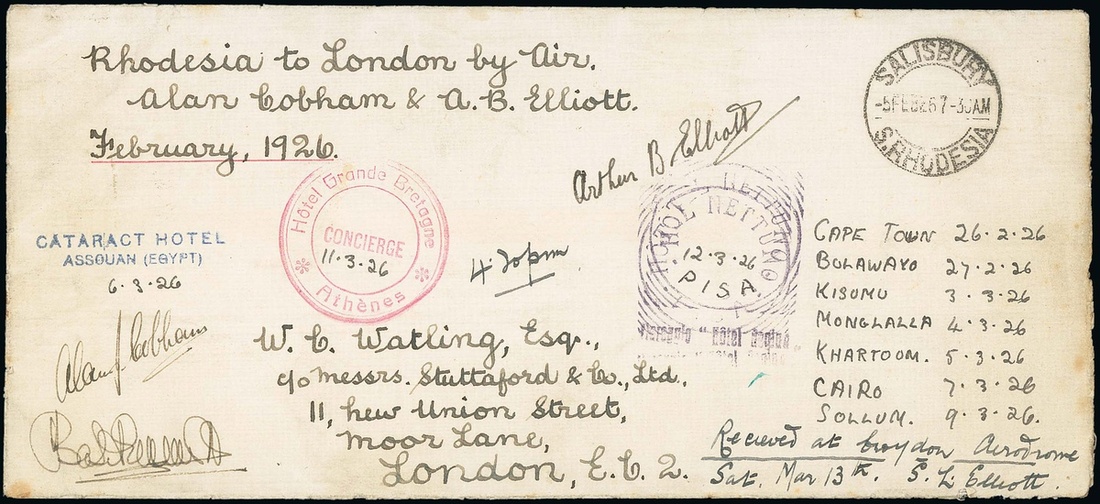 Rhodesia to London by Air.
Alan Cobham & A. B. Elliott.
February, 1926.
SALISBURY
-5FEB26 7-30AM
S. RHODESIA
Arthur B Elliott
Hôtel Grande Bretagne
CONCIERGE
11·3·26
Athènes
CATARACT HOTEL
ASSOUAN (EGYPT)
6·3·26
NETTUNO
12·3·26
PISA
CAPE TOWN 26·2·26
BULAWAYO 27·2·26
KISUMU 3·3·26
MONGLALLA 4·3·26
KHARTOOM. 5·3·26
CAIRO 7·3·26
SOLLUM. 9·3·26.
Alan J Cobham
W. C. Watling, Esq.,
c/o Messrs. Stuttaford & Co., Ltd.,
11, New Union Street,
Moor Lane,
London, E.C.2.
Recieved at Croydon Aerodrome
Sat. Mar 13th. S. L Elliott.